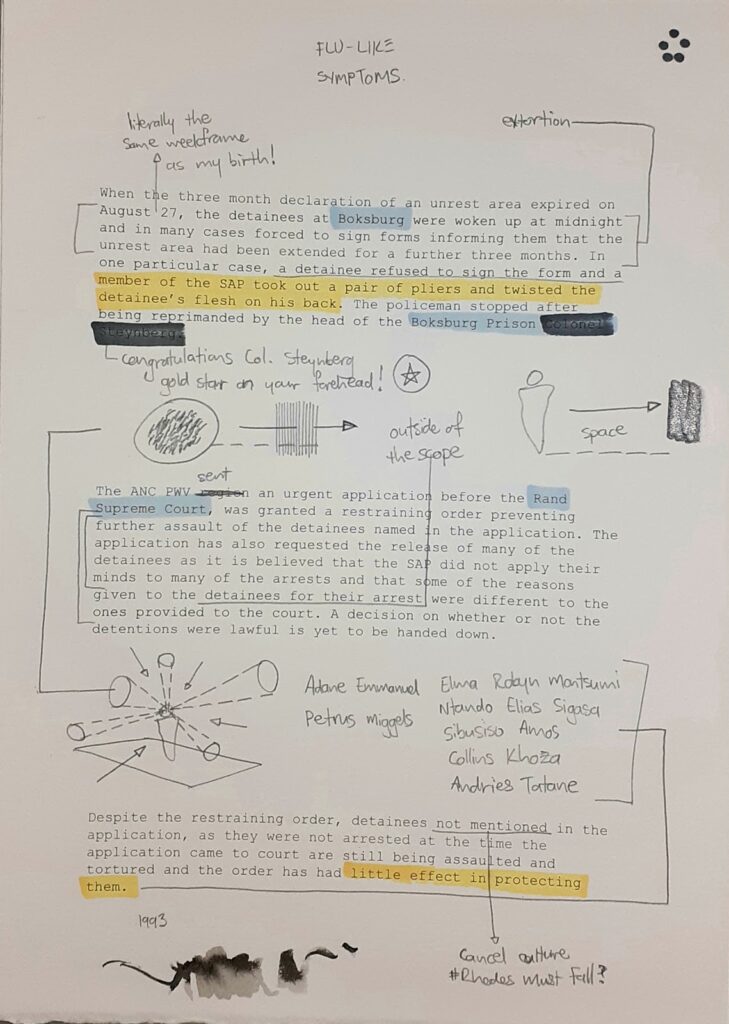 FLU-LIKE
SYMPTOMS.
literally the
same weekframe
as my birth!
extortion
When the three month declaration of an unrest area expired on
August 27, the detainees at Boksburg were woken up at midnight
and in many cases forced to sign forms informing them that the
unrest area had been extended for a further three months. In
one particular case, a detainee refused to sign the form and a
member of the SAP took out a pair of pliers and twisted the
detainee's flesh on his back. The policeman stopped after
being reprimanded by the head of the Boksburg Prison Colonel
Steynberg.
congratulations Col. Steynberg
gold star on your forehead!
outside of
the scope
space
sent
The ANC PWV region an urgent application before the Rand
Supreme Court, was granted a restraining order preventing
further assault of the detainees named in the application. The
application has also requested the release of many of the
detainees as it is believed that the SAP did not apply their
minds to many of the arrests and that some of the reasons
given to the detainees for their arrest were different to the
ones provided to the court. A decision on whether or not the
detentions were lawful is yet to be handed down.
Adane Emmanuel
Petrus Miggels
Elma Robyn Montsumi
Ntando Elias Sigasa
Sibusiso Amos
Collins Khoza
Andries Tatane
Despite the restraining order, detainees not mentioned in the
application, as they were not arrested at the time the
application came to court are still being assaulted and
tortured and the order has had little effect in protecting
them.
1993
cancel culture
#Rhodes Must Fall?